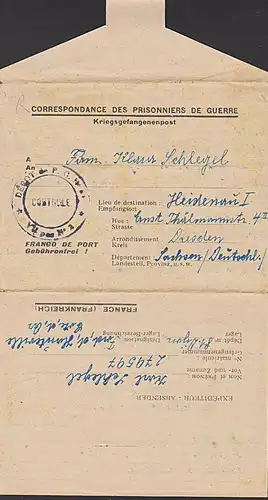 CORRESPONDANCE DES PRISONNIERS DE GUERRE
Kriegsgefangenenpost
A
An
Fam. Klaus Schlegel
DÉPOT P.G.
CONTROLE
Lieu de destination : Heidenau I
Empfangsort
Rue : Ernst Thälmannstr.
Strasse
FRANCO DE PORT
Gebührenfrei !
Arrondissement Dresden
Kreis
Département : Sachsen/Deutschl.
Landesteil, Provinz, u.s.w.
FRANCE (FRANKREICH)
Lager-Bezeichnung
Désignation
Lager
Dépôt
Gefangenennummer
N° matricule : 279597
Vor- und Zuname
Nom et Prénom Schlegel
EXPÉDITEUR - ABSENDER